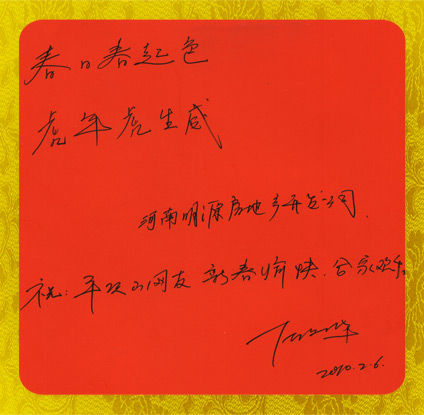 春日春起色
虎年虎生威
河南明源房地产开发公司
祝：平顶山网友 新春愉快.合家欢乐
2010.2.6.